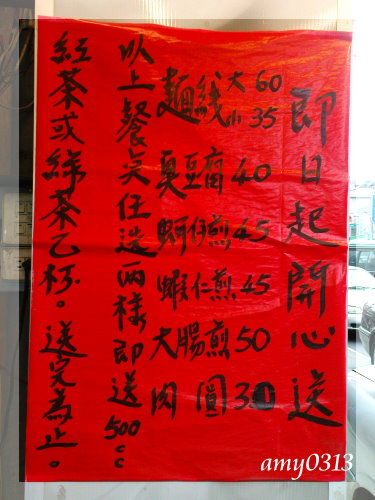 即日起開心送
麵線 大 60
小 35
臭豆腐 40
蚵仔煎 45
蝦仁煎 45
大腸煎 50
肉圓 30
以上餐点任选两樣即送500cc
紅茶或綠茶乙杯。送完為止。
amy0313